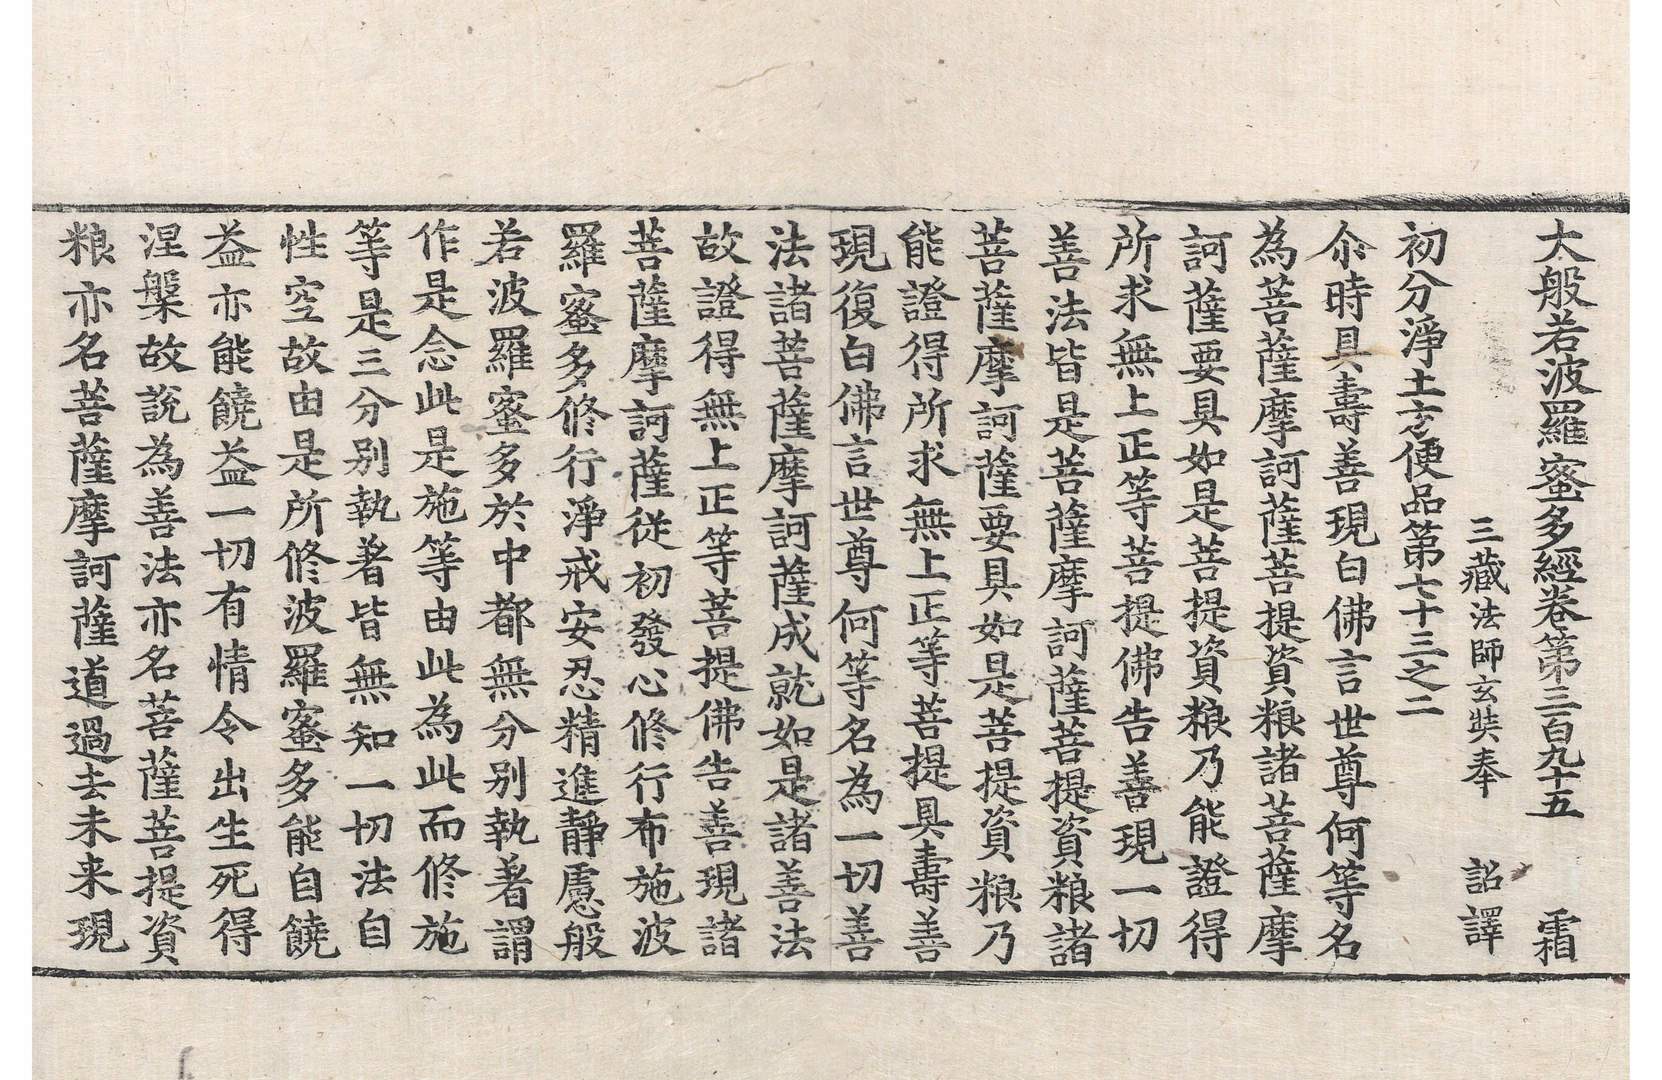 大般若波羅蜜多經卷第三百九十五　霜
三藏法師玄奘奉　詔譯
初分淨土方便品第七十三之二
尒時具壽善現白佛言世尊何等名
為菩薩摩訶薩菩提資粮諸菩薩摩
訶薩要具如是菩提資粮乃能證得
所求無上正等菩提佛告善現一切
善法皆是菩薩摩訶薩菩提資粮諸
菩薩摩訶薩要具如是菩提資粮乃
能證得所求無上正等菩提具壽善
現復白佛言世尊何等名為一切善
法諸菩薩摩訶薩成就如是諸善法
故證得無上正等菩提佛告善現諸
菩薩摩訶薩從初發心修行布施波
羅蜜多修行淨戒安忍精進靜慮般
若波羅蜜多於中都無分別執著謂
作是念此是施等由此為此而修施
等是三分別執著皆無知一切法自
性空故由是所修波羅蜜多能自饒
益亦能饒益一切有情令出生死得
涅槃故說為善法亦名菩薩菩提資
粮亦名菩薩摩訶薩道過去未来現